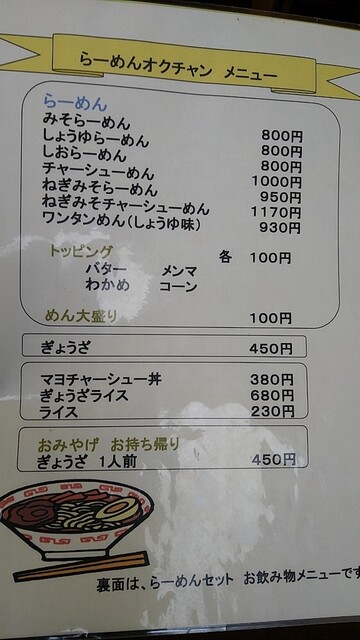 らーめんオクチャン メニュー
らーめん
みそらーめん 800円
しょうゆらーめん 800円
しおらーめん 800円
チャーシューめん 1000円
ねぎみそらーめん 950円
ねぎみそチャーシューめん 1170円
ワンタンめん(しょうゆ味) 930円
トッピング 各 100円
バター メンマ
わかめ コーン
めん大盛り 100円
ぎょうざ 450円
マヨチャーシュー丼 380円
ぎょうざライス 680円
ライス 230円
おみやげ お持ち帰り
ぎょうざ 1人前 450円
裏面は、らーめんセット お飲み物メニューです